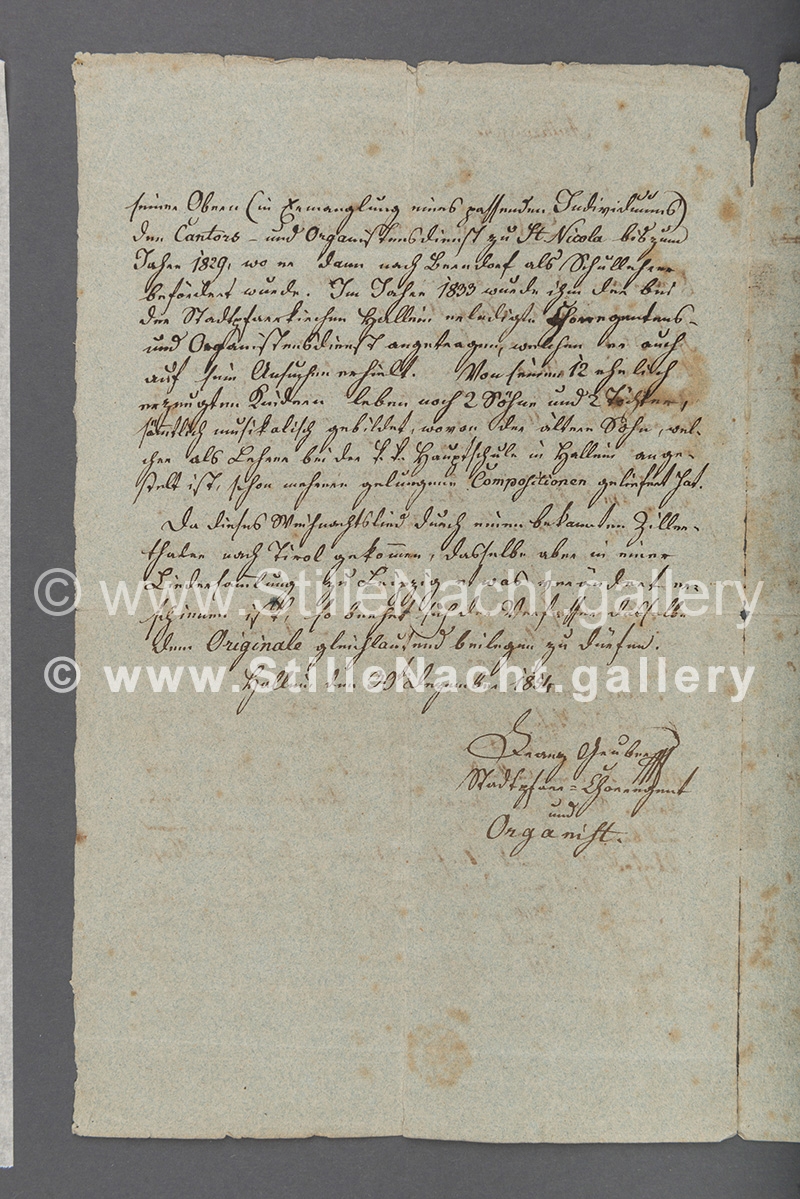 seiner Obern (in Ermanglung eines passenden Individuums)
den Cantors- und Organistensdienst zu St Nicola bis zum
Jahre 1829, wo er dann nach Berndorf als Schullehrer
befördert wurde. Im Jahre 1833 wurde ihm der bei
der Stadtpfarrkirchen Hallein erledigte Chorregentens-
und Organistensdienst angetragen, welchen er auch
auf sein Ansuchen erhielt. Von seinen 12 ehelich
erzeugten Kindern leben noch 2 Söhne und 2 Töchter,
sämtlich musikalisch gebildet, wovon der ältere Sohn, wel-
cher als Lehrer bei der k. k. Hauptschule in Hallein ange-
stelt ist, schon mehrere gelungene Compositionen geliefert hat.
Da dieses Weihnachtslied durch einen bekannten Ziller-
thaler nach Tirol gekommen, dasselbe aber in einer
Liedersammlung zu Leipzig etwas verändert er-
schienen ist, so beehrt sich der Verfasser dasselbe
dem Originale gleichlautend beilegen zu dürfen.
Hallein den 30t Dezember 1854
Franz Gruber
Stadtpfarr=Chorregent
und
Organist.
© www.StilleNacht.gallery
© www.StilleNacht.gallery